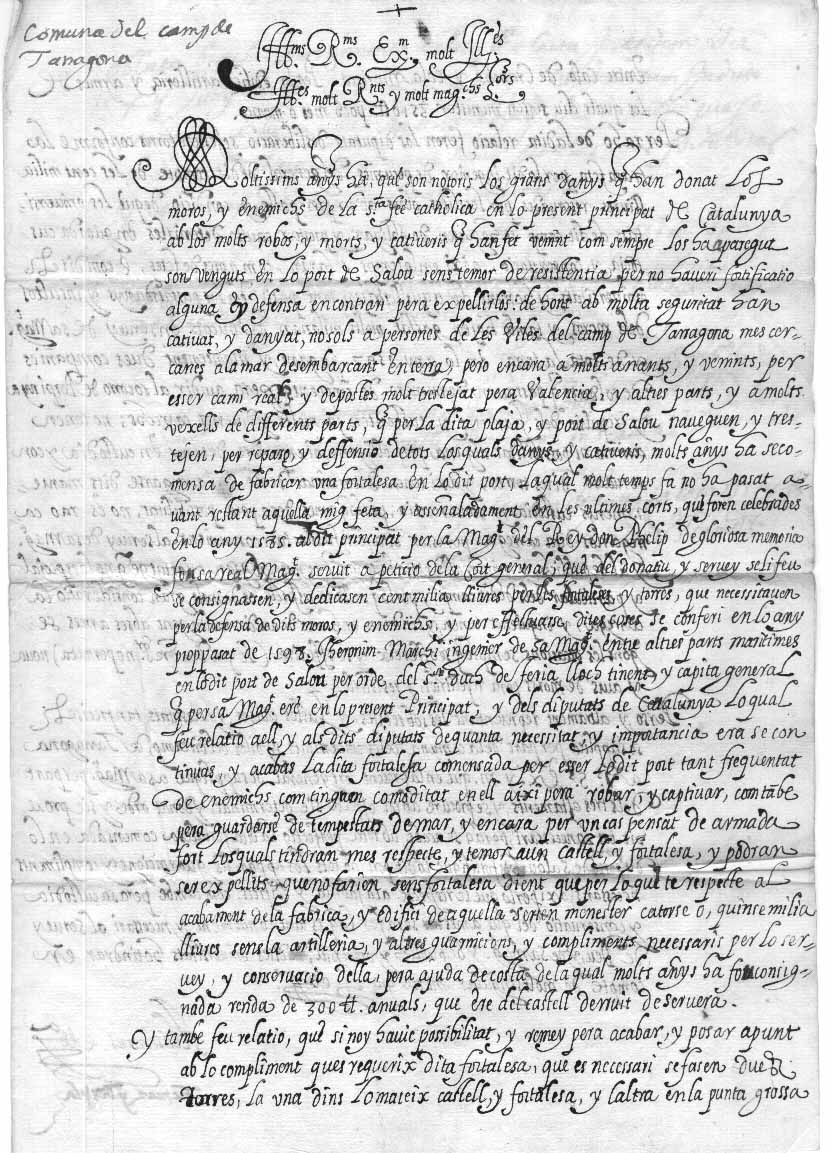 +
Comuna del camp de
Tarragona
Illms Rms Exm. molt Illes.
Illes molt Rnts y molt magchs Sors
Moltissims anys ha, que son notoris los grans danys q han donat los
moros, y enemichs de la sta fee catholica en lo present principat de Catalunya
ab los molts robos, y morts, y cativeris q han fet venint com sempre los ha paregut
son venguts en lo port de Salou sens temor de resistentia per no haveri fortificatio
alguna ny defensa encontran pera expellirlos: de hont ab molta seguritat han
cativat, y danyat, no sols a persones de les viles del camp de Tarragona mes cer-
canes a la mar desembarcant en terra, pero encara a molts anants, y venints, per
esser cami real, y de postes molt trestejat pera Valencia, y altres parts, y a molts
vexells de differents parts, q per la dita plaja, y port de Salou naveguen, y tres-
tejen, per reparo, y deffensio de tots los quals danys, y cativeris, molts anys ha se co-
mensa de fabricar una fortalesa en lo dit port, la qual molt temps fa no ha pasat a-
vant restant aquella mig feta, y assenaladament en les ultimes corts, que foren celebrades
en lo any 1585. al dit principat per la Magt. del Rey don Phelip de gloriosa memoria
fonsa real Magt. servit a peticio de la Cort general, que del donatiu, y servey se li feu
se consignassen, y dedicasen cent milia lliures per les fortaleses, y torres, que necessitaven
per la defensa de dits moros, y enemichs, y per effectuarse dites coses se conferi en lo any
propassat de 1598. Hheronim Marchi ingenier de sa Magt. entre altres parts maritimes
en lo dit port de Salou per orde, del sor duch de feria lloch tinent, y capita general
q per sa Magt. ere en lo present Principat, y dels diputats de Catalunya lo qual
feu relatio a ell, y als dits diputats de quanta necessitat, y importancia era se con
tinuas, y acabas la dita fortalesa comensada per esser lo dit port tant frequentat
de enemichs com tinguen comoditat en ell axi pera robar, y captivar, com tãbe
pera guardarse de tempestats de mar, y encara per un cas pensat de armada
fort los quals tindran mes respecte, y temor a un castell, y fortalesa, y podran
ser expellits que no farien sens fortalesa dient que per lo que te respecte al
acabament de la fabrica, y edifici de aquella serien menester catorse o, quinse milia
lliures sens la artilleria, y altres guarnicions, y compliments necessaris per lo ser-
vey, y conservacio della, pera ajuda de costa de la qual molts anys ha fou consig-
nada renda de 300 ll. anuals, que ere del castell derruit de Servera.
Y tambe feu relatio, que si noy havie possibilitat, y remey pera acabar, y posar apunt
ab lo compliment ques requerix dita fortalesa, que es necessari se fasen dues
torres, la una dins lo mateix castell, y fortalesa, y laltra en la punta grossa